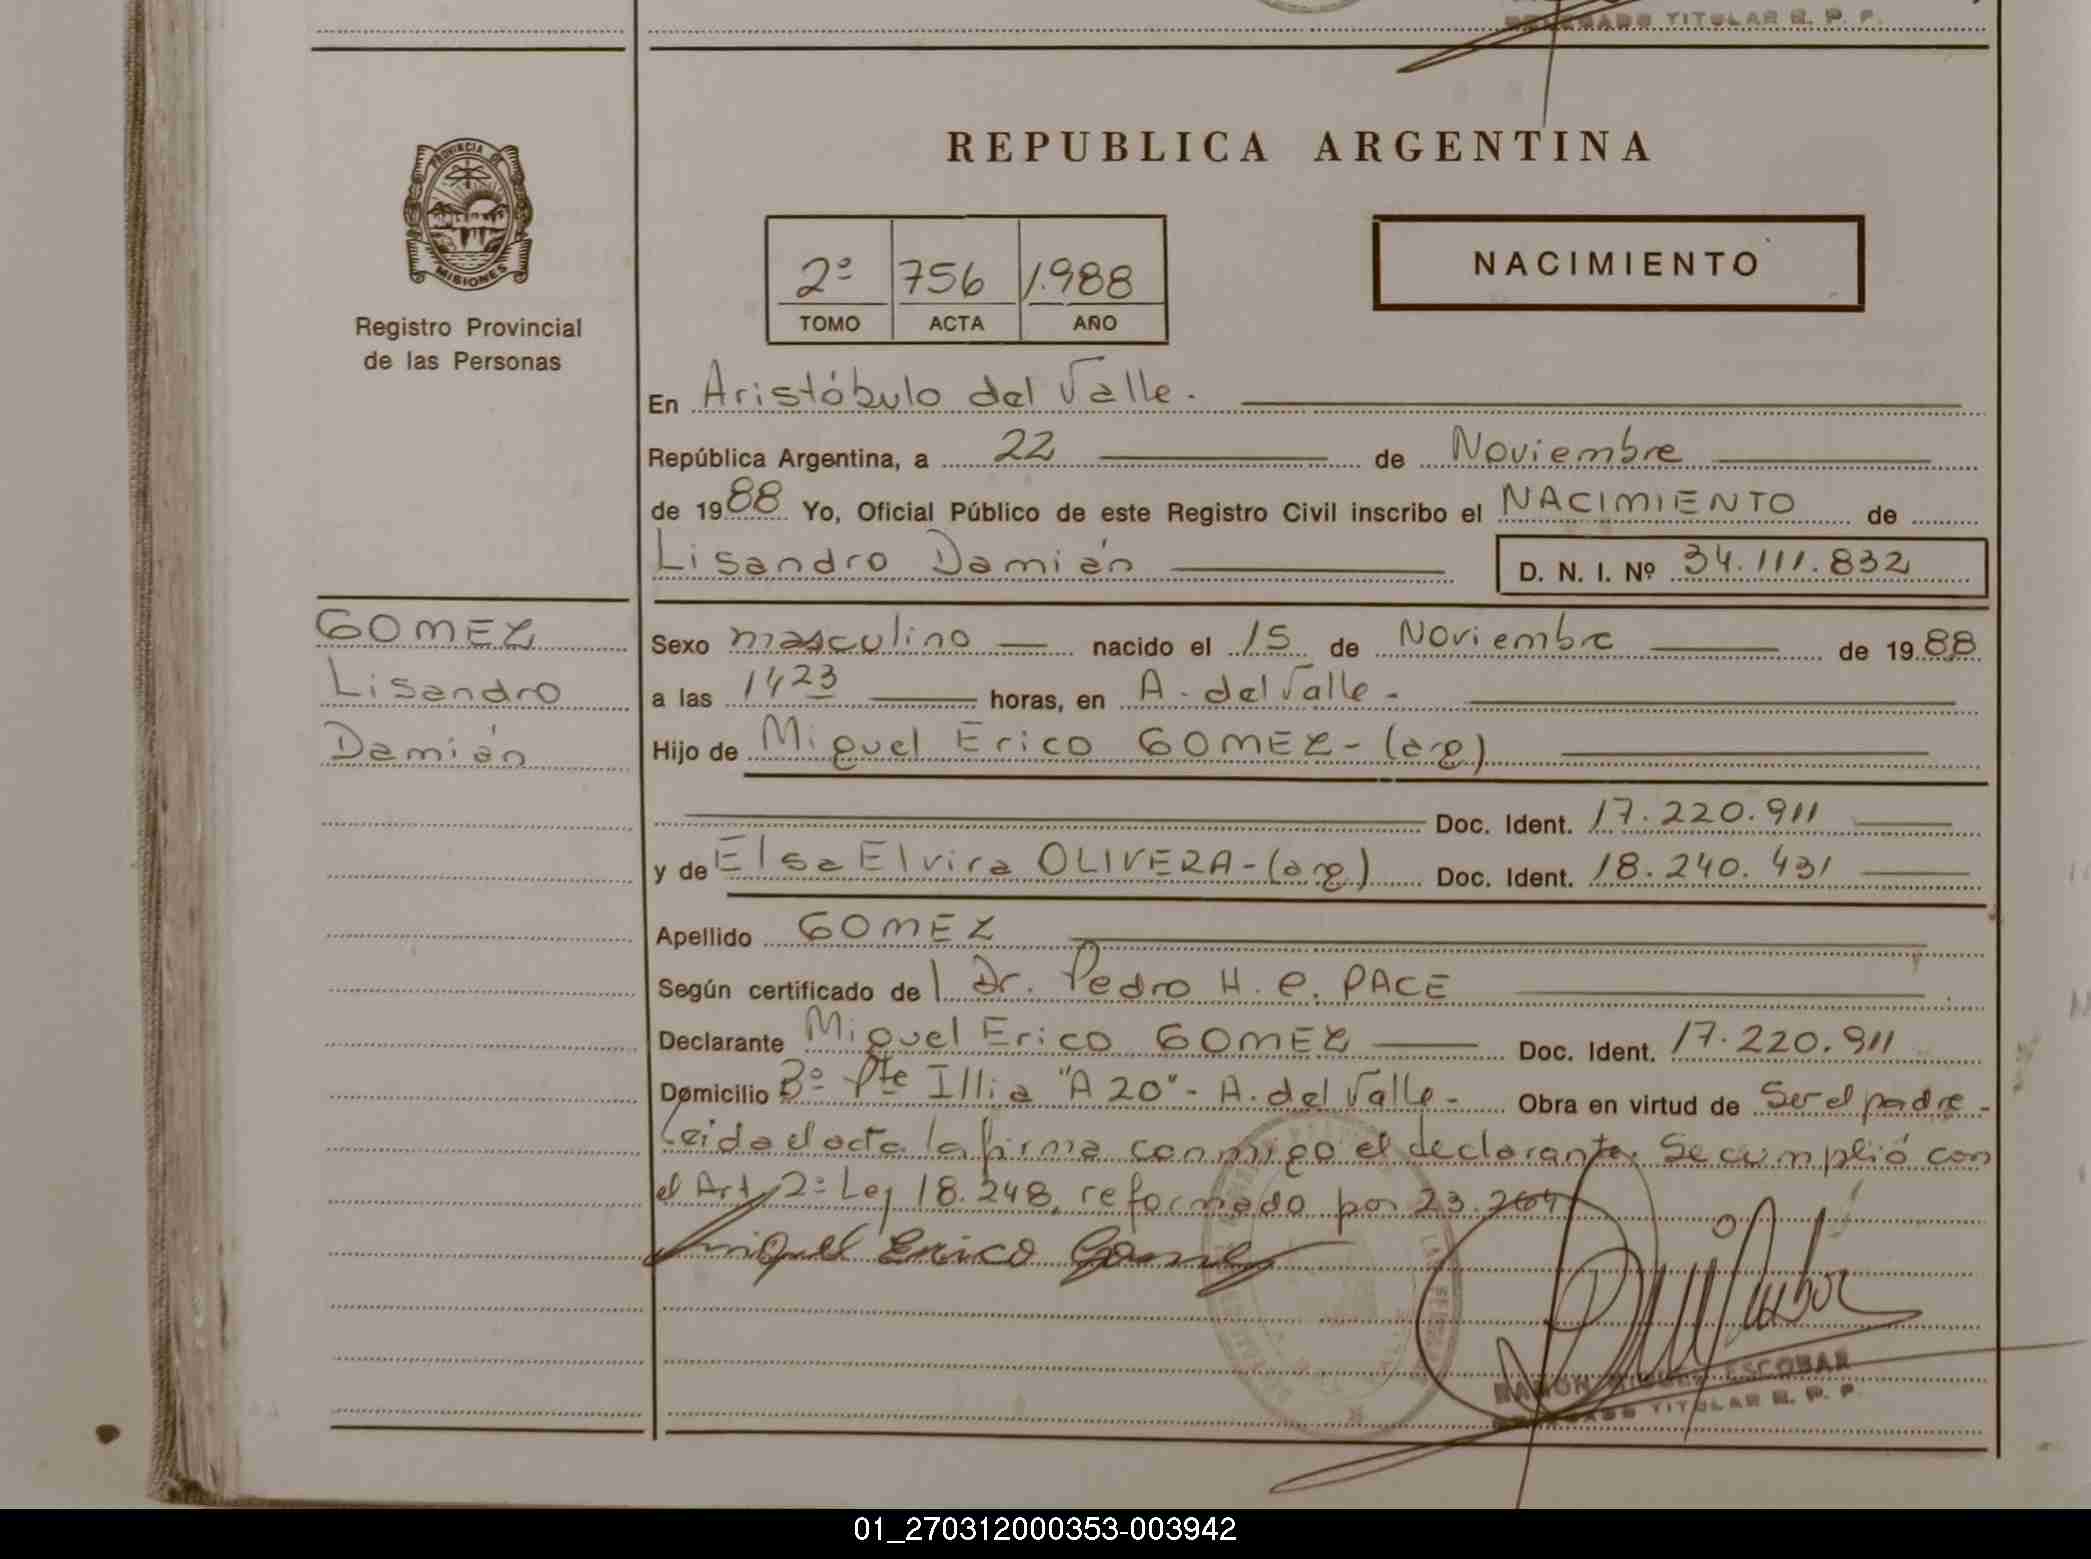 DELEGADO TITULAR R. P. P.
PROVINCIA DE
MISIONES
Registro Provincial
de las Personas
REPUBLICA ARGENTINA
2º 756 1.988
TOMO ACTA AÑO
NACIMIENTO
En Aristóbulo del Valle.
República Argentina, a 22 de Noviembre
de 1988 Yo, Oficial Público de este Registro Civil inscribo el NACIMIENTO de
Lisandro Damián D. N. I. Nº 34.111.832
GOMEZ
Lisandro
Damián
Sexo masculino nacido el 15 de Noviembre de 1988
a las 1423 horas, en A. del Valle -
Hijo de Miguel Erico GOMEZ - (arg)
Doc. Ident. 17.220.911
y de Elsa Elvira OLIVERA - (arg) Doc. Ident. 18.240.431
Apellido GOMEZ
Según certificado del Dr. Pedro H. C. PACE
Declarante Miguel Erico GOMEZ Doc. Ident. 17.220.911
Domicilio Bº Pte Illia "A 20" - A. del Valle - Obra en virtud de Ser el padre -
Leida el acta la firma conmigo el declarante. Se cumplió con
el Art. 2º Ley 18.248, reformado por 23.264
Miguel Erico Gomez
RAMON MIGUEL ESCOBAR
DELEGADO TITULAR R. P. P.
01_270312000353-003942